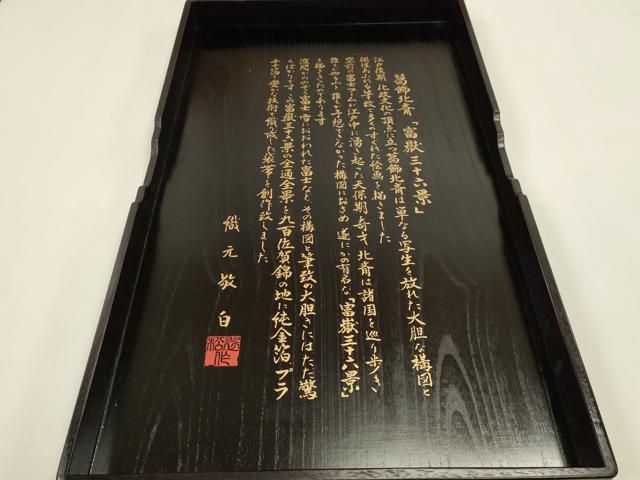 葛飾北斎「富嶽三十六景」
江戸後期 化政文化の頂点に立つ葛飾北斎は単なる写生を放れた大胆な構図と
個性あふれる筆致で多くのすぐれた絵画を描きました
空前の富士ブームが江戸中に湧き起った天保期 奇才 北斎は諸国を巡り歩き
予想できなかった構図におさめ 遂にかの有名な「富嶽三十六景」
を描きあります
波間からのぞく富士 雪におおわれた富士など、その構図と筆致の大胆さにはただ驚
くばかりです この富嶽三十六景の全通全景を九百佐賀錦の地に純金箔、プラ
チナ箔 技術で織り成した袋帯を創作致しました
織元敬白